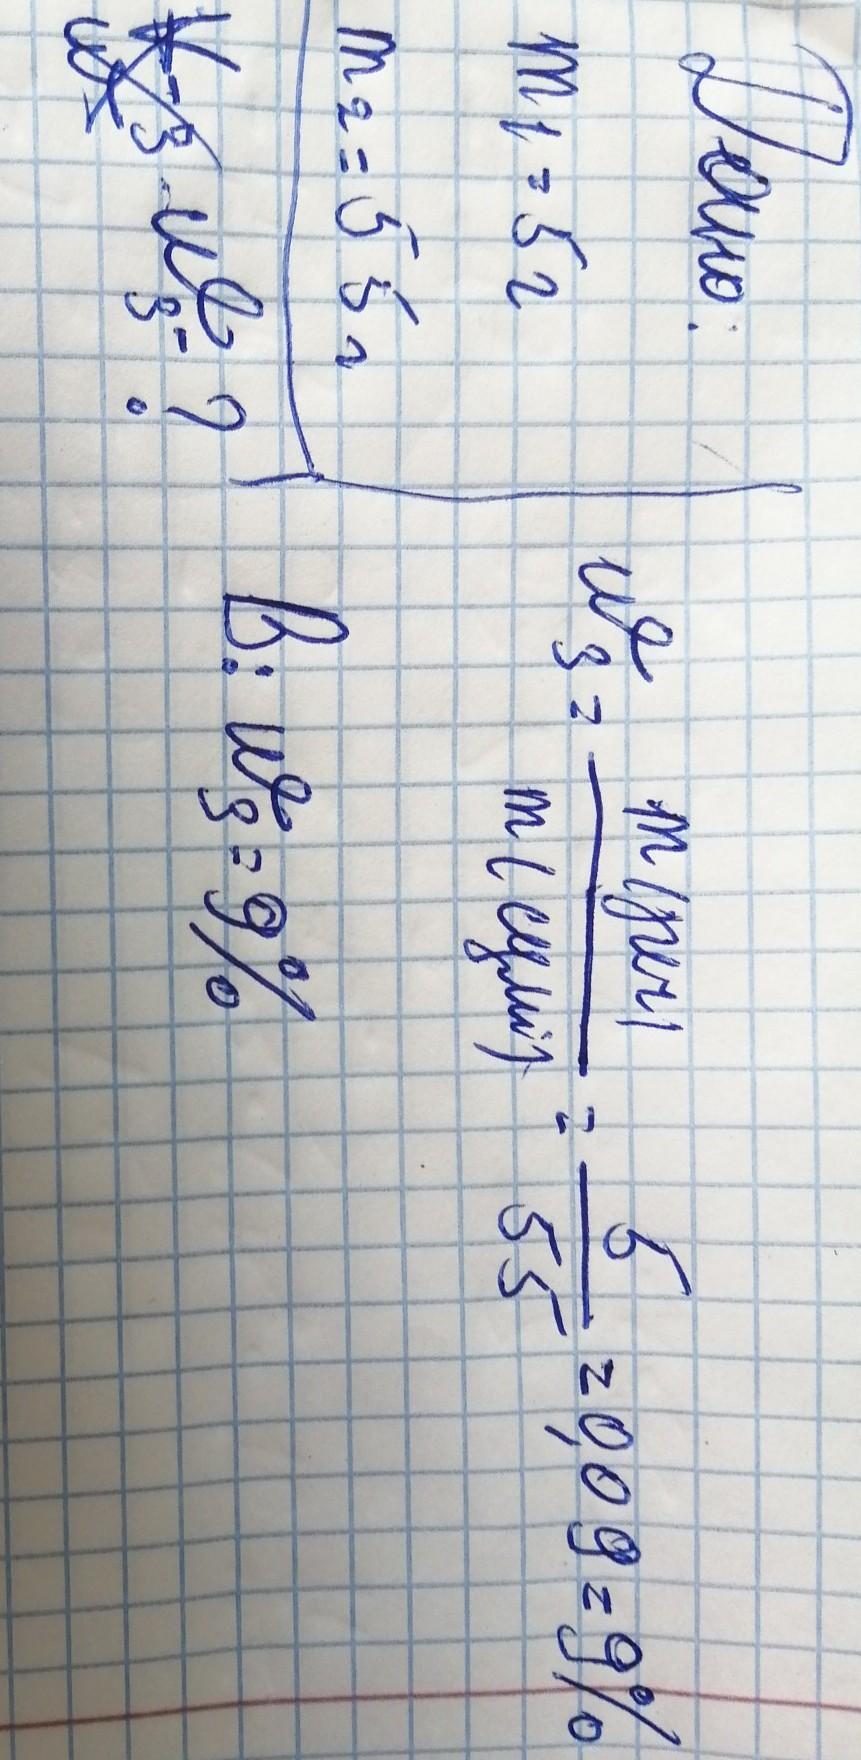 Дано:
m1 = 5г
m2 = 55г
W з = ?
W з = m(реч) / m(суміш) = 5 / 55 = 0,09 = 9%
В: W з = 9%